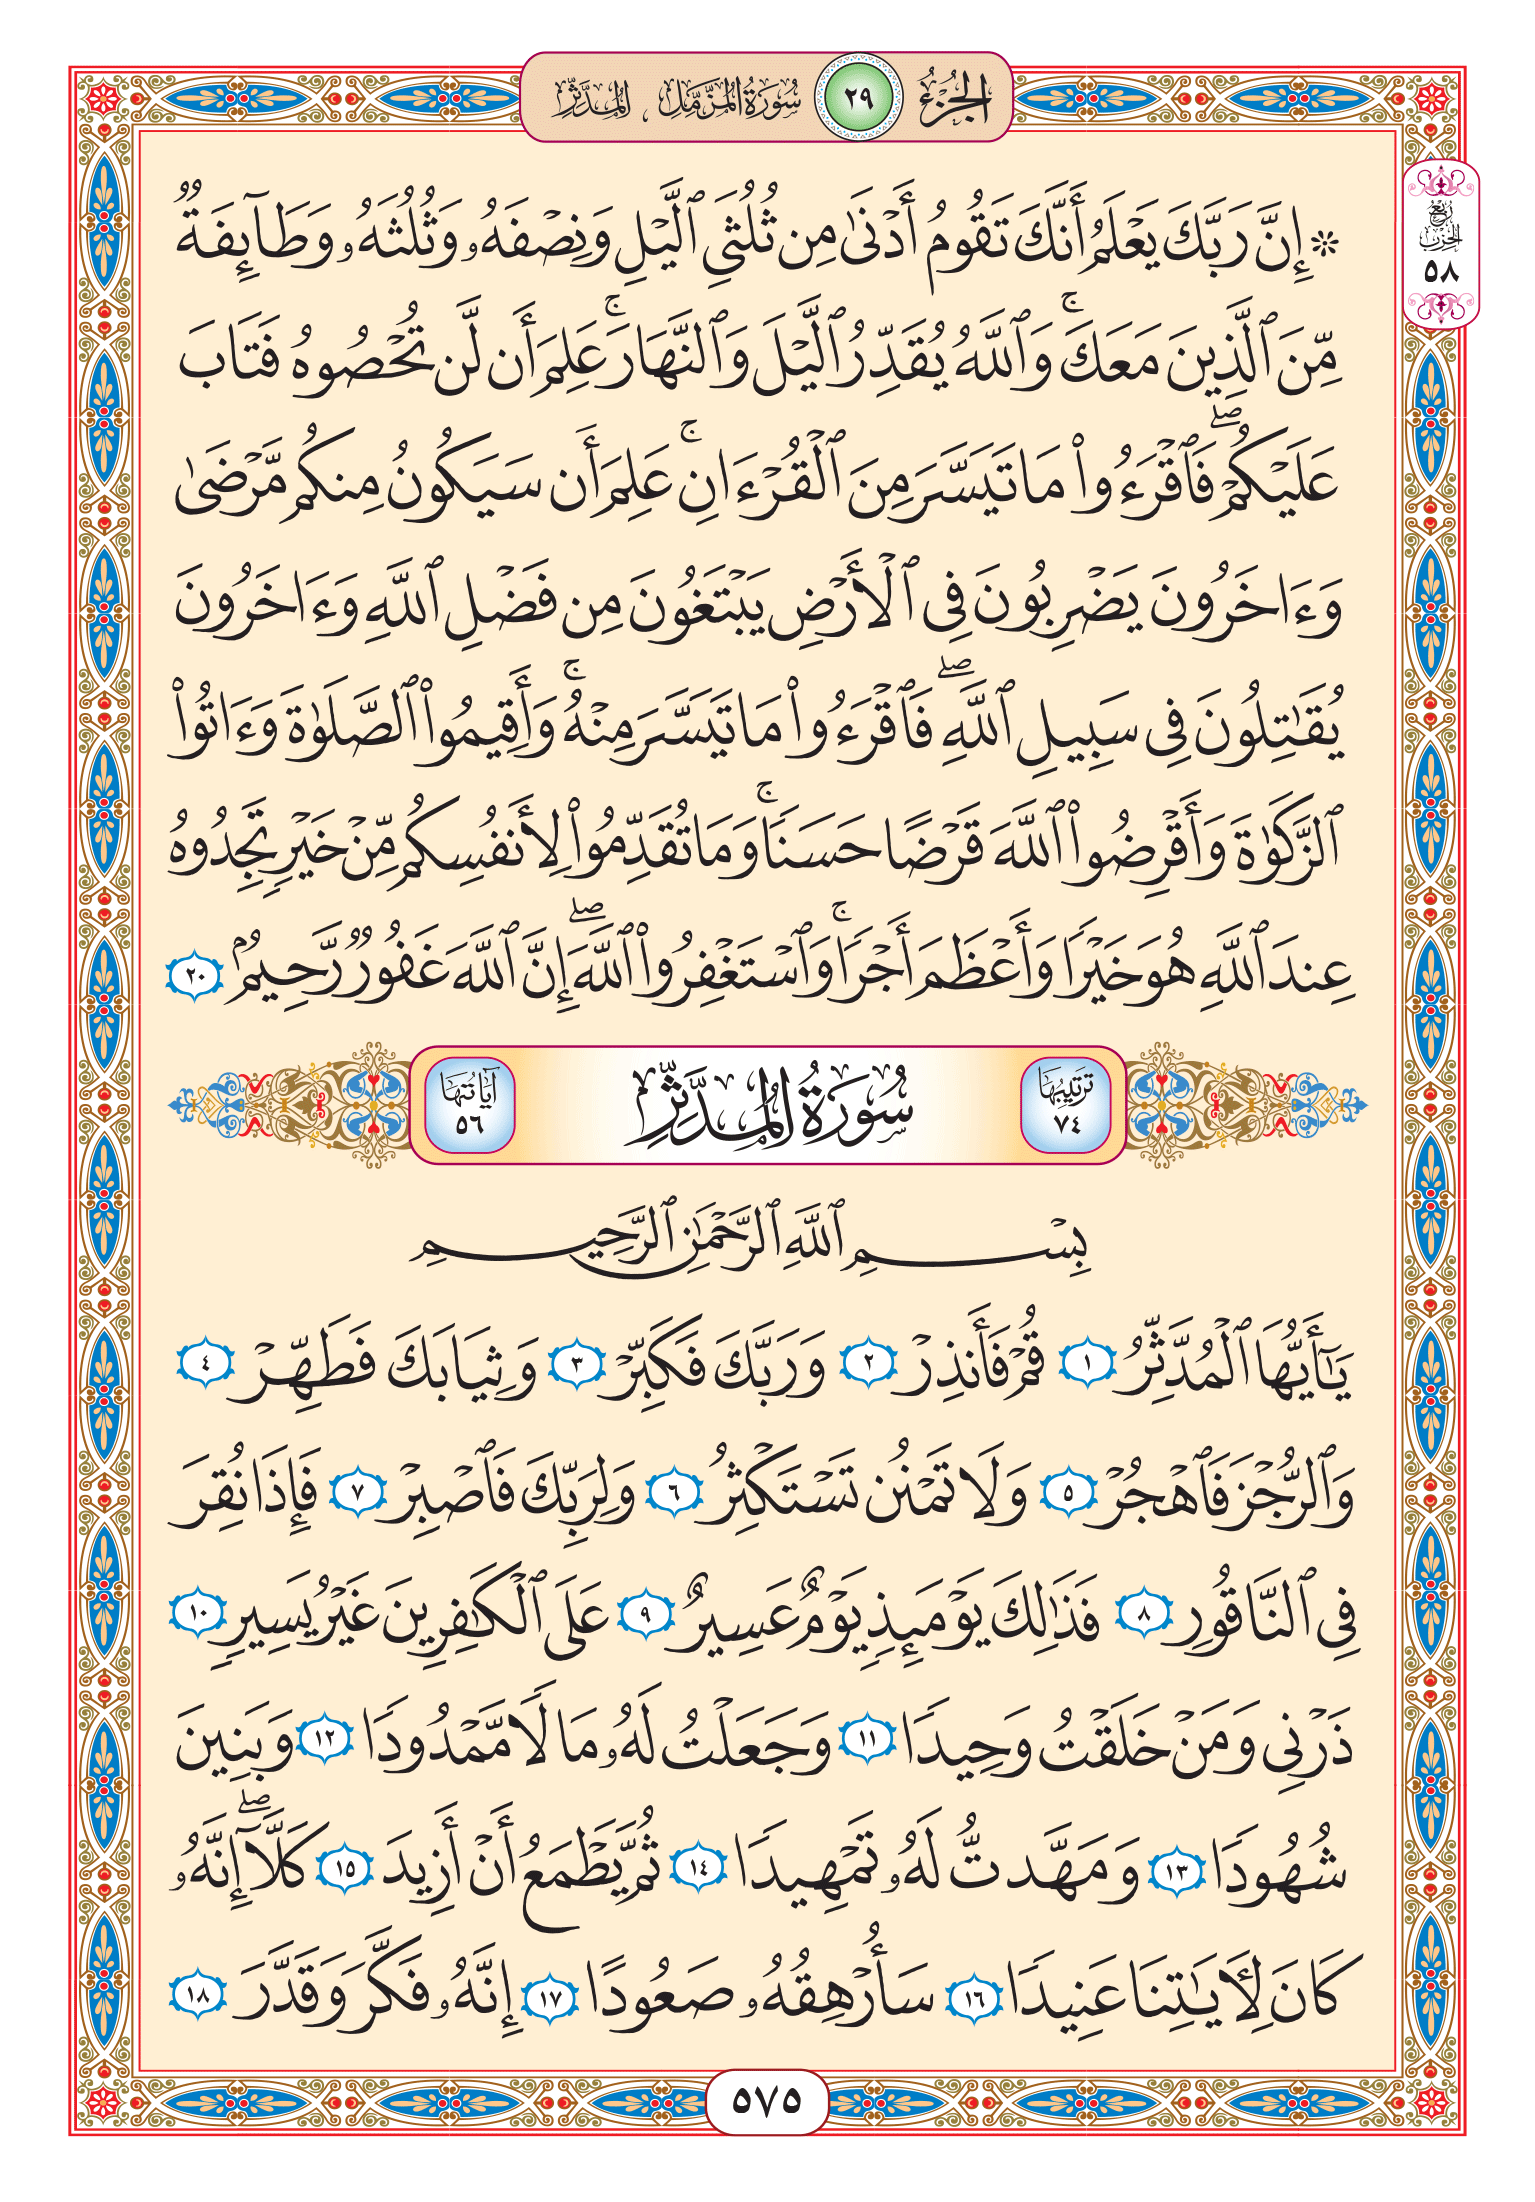 الجزء ٢٩ سورة المزمل ، المدثر
ربع
الحزب
٥٨
۞ إِنَّ رَبَّكَ يَعْلَمُ أَنَّكَ تَقُومُ أَدْنَىٰ مِن ثُلُثَيِ ٱلَّيْلِ وَنِصْفَهُۥ وَثُلُثَهُۥ وَطَآئِفَةٌ
مِّنَ ٱلَّذِينَ مَعَكَۚ وَٱللَّهُ يُقَدِّرُ ٱلَّيْلَ وَٱلنَّهَارَۚ عَلِمَ أَن لَّن تُحْصُوهُ فَتَابَ
عَلَيْكُمْۖ فَٱقْرَءُوا۟ مَا تَيَسَّرَ مِنَ ٱلْقُرْءَانِۚ عَلِمَ أَن سَيَكُونُ مِنكُم مَّرْضَىٰ
وَءَاخَرُونَ يَضْرِبُونَ فِى ٱلْأَرْضِ يَبْتَغُونَ مِن فَضْلِ ٱللَّهِ وَءَاخَرُونَ
يُقَٰتِلُونَ فِى سَبِيلِ ٱللَّهِۖ فَٱقْرَءُوا۟ مَا تَيَسَّرَ مِنْهُۚ وَأَقِيمُوا۟ ٱلصَّلَوٰةَ وَءَاتُوا۟
ٱلزَّكَوٰةَ وَأَقْرِضُوا۟ ٱللَّهَ قَرْضًا حَسَنًاۚ وَمَا تُقَدِّمُوا۟ لِأَنفُسِكُم مِّنْ خَيْرٍ تَجِدُوهُ
عِندَ ٱللَّهِ هُوَ خَيْرًا وَأَعْظَمَ أَجْرًاۚ وَٱسْتَغْفِرُوا۟ ٱللَّهَۖ إِنَّ ٱللَّهَ غَفُورٌ رَّحِيمٌ ٢٠
ترتيبها ٧٤ سُورَةُ المُدَّثِّرِ آياتُها ٥٦
بِسْمِ ٱللَّهِ ٱلرَّحْمَٰنِ ٱلرَّحِيمِ
يَٰٓأَيُّهَا ٱلْمُدَّثِّرُ ١ قُمْ فَأَنذِرْ ٢ وَرَبَّكَ فَكَبِّرْ ٣ وَثِيَابَكَ فَطَهِّرْ ٤
وَٱلرُّجْزَ فَٱهْجُرْ ٥ وَلَا تَمْنُن تَسْتَكْثِرُ ٦ وَلِرَبِّكَ فَٱصْبِرْ ٧ فَإِذَا نُقِرَ
فِى ٱلنَّاقُورِ ٨ فَذَٰلِكَ يَوْمَئِذٍ يَوْمٌ عَسِيرٌ ٩ عَلَى ٱلْكَٰفِرِينَ غَيْرُ يَسِيرٍ ١٠
ذَرْنِى وَمَنْ خَلَقْتُ وَحِيدًا ١١ وَجَعَلْتُ لَهُۥ مَالًا مَّمْدُودًا ١٢ وَبَنِينَ
شُهُودًا ١٣ وَمَهَّدتُّ لَهُۥ تَمْهِيدًا ١٤ ثُمَّ يَطْمَعُ أَنْ أَزِيدَ ١٥ كَلَّآۖ إِنَّهُۥ
كَانَ لِأَيَٰتِنَا عَنِيدًا ١٦ سَأُرْهِقُهُۥ صَعُودًا ١٧ إِنَّهُۥ فَكَّرَ وَقَدَّرَ ١٨
٥٧٥